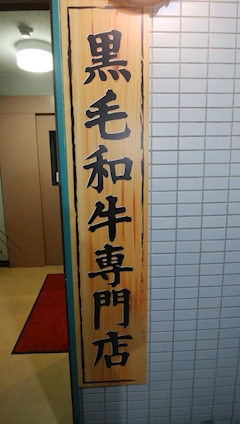 黒毛和牛専門店